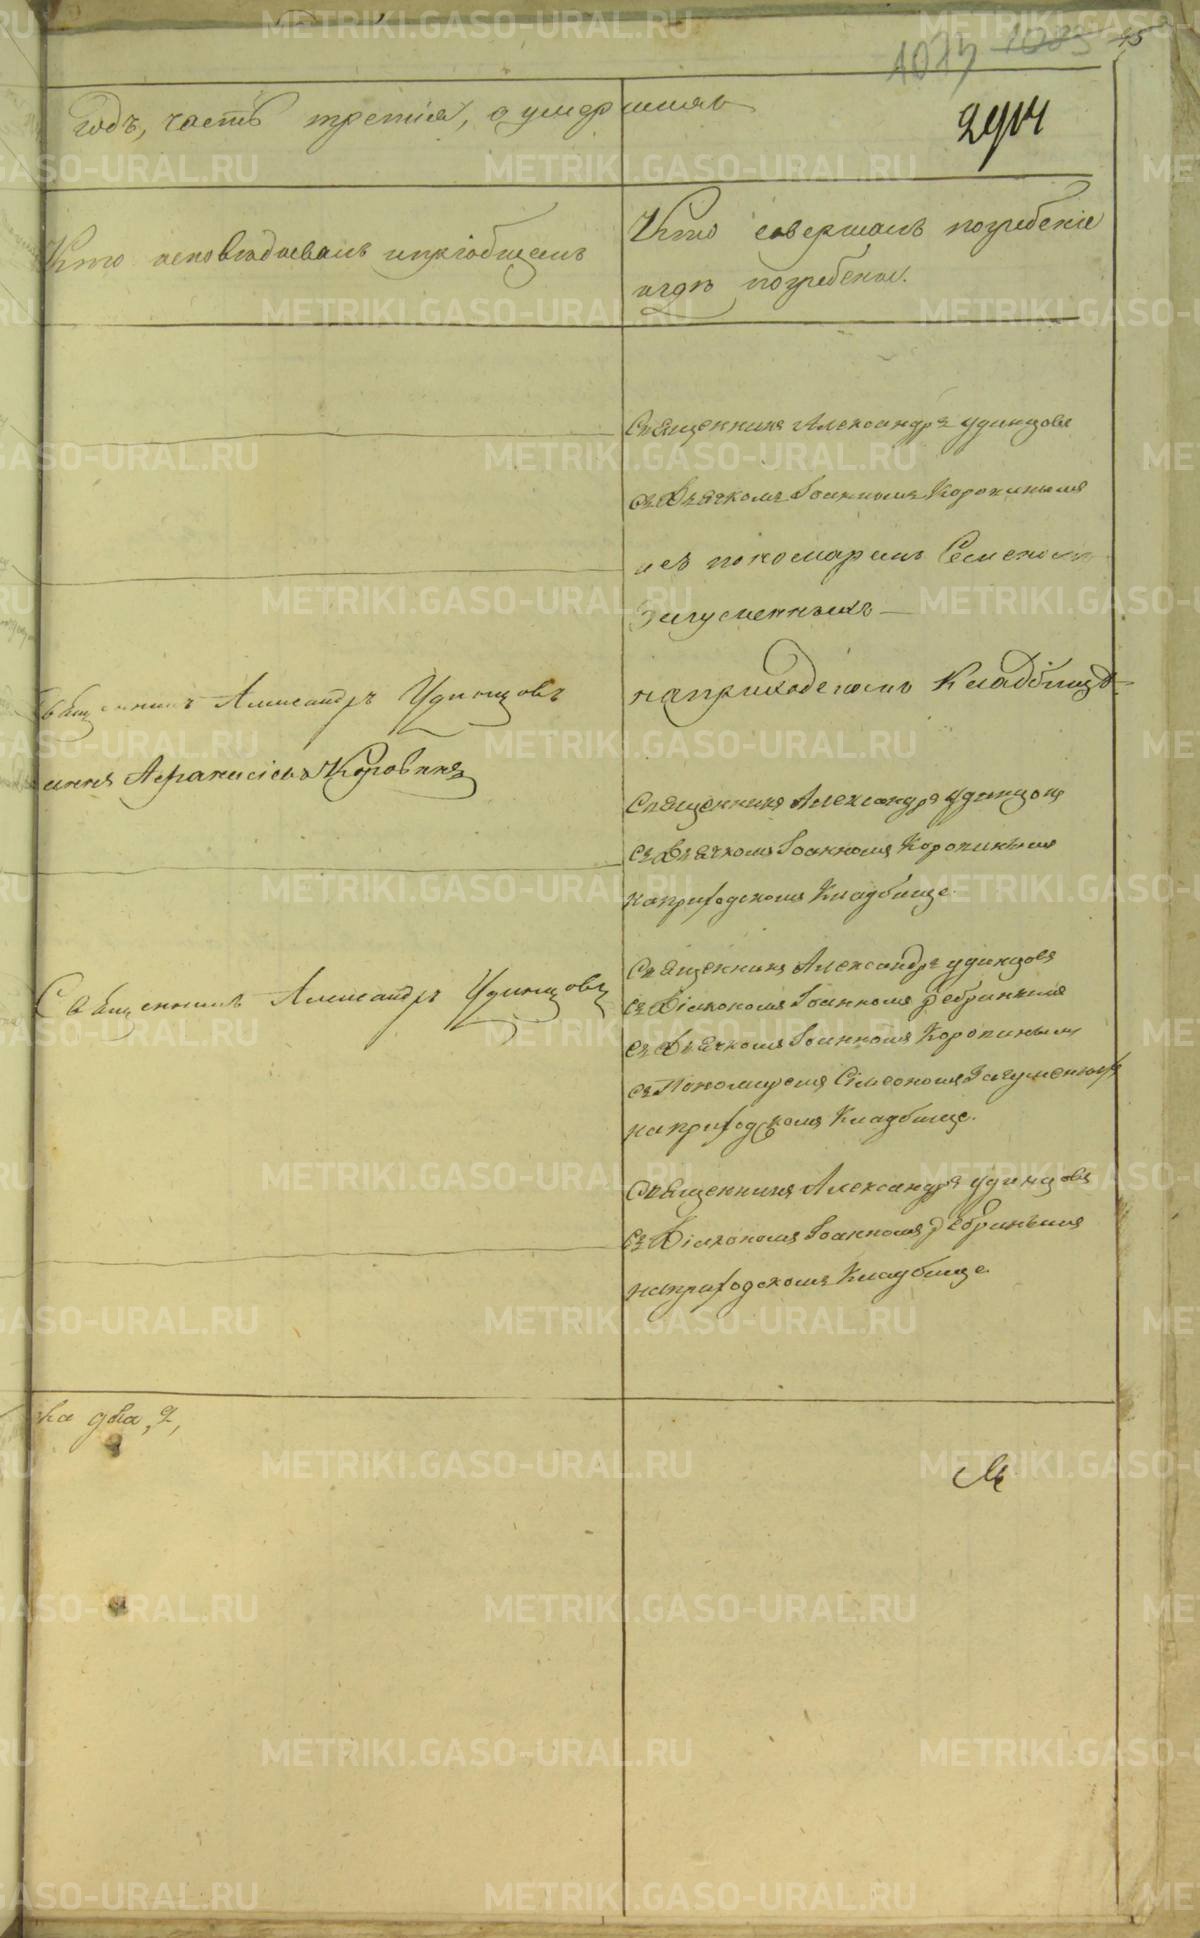 1014 1003 15
годъ, часть третія, о умершихъ
2914
Кто исповѣдывалъ и пріобщалъ
Кто совершалъ погребеніе
и гдѣ погребены.
Священникъ Александръ Удинцовъ
съ Дьячкомъ Іоанномъ Коровинымъ
и съ пономаремъ Семеномъ
Игуменнымъ
на приходскомъ Кладбищѣ
Священникъ Александръ Удинцовъ
Аѳанасіевъ Коровинъ
Священникъ Александръ Удинцовъ
съ Дьячкомъ Іоанномъ Коровинымъ
на приходскомъ Кладбище.
Священникъ Александръ Удинцовъ
Священникъ Александръ Удинцовъ
съ Діякономъ Іоанномъ Ребринымъ
съ Дьячкомъ Іоанномъ Коровинымъ
съ Пономаремъ Сімеономъ Игуменнымъ
на приходскомъ Кладбище.
Священникъ Александръ Удинцовъ
съ Діякономъ Іоанномъ Ребринымъ
на приходскомъ Кладбище.
ка два, 2,
METRIKI.GASO-URAL.RU